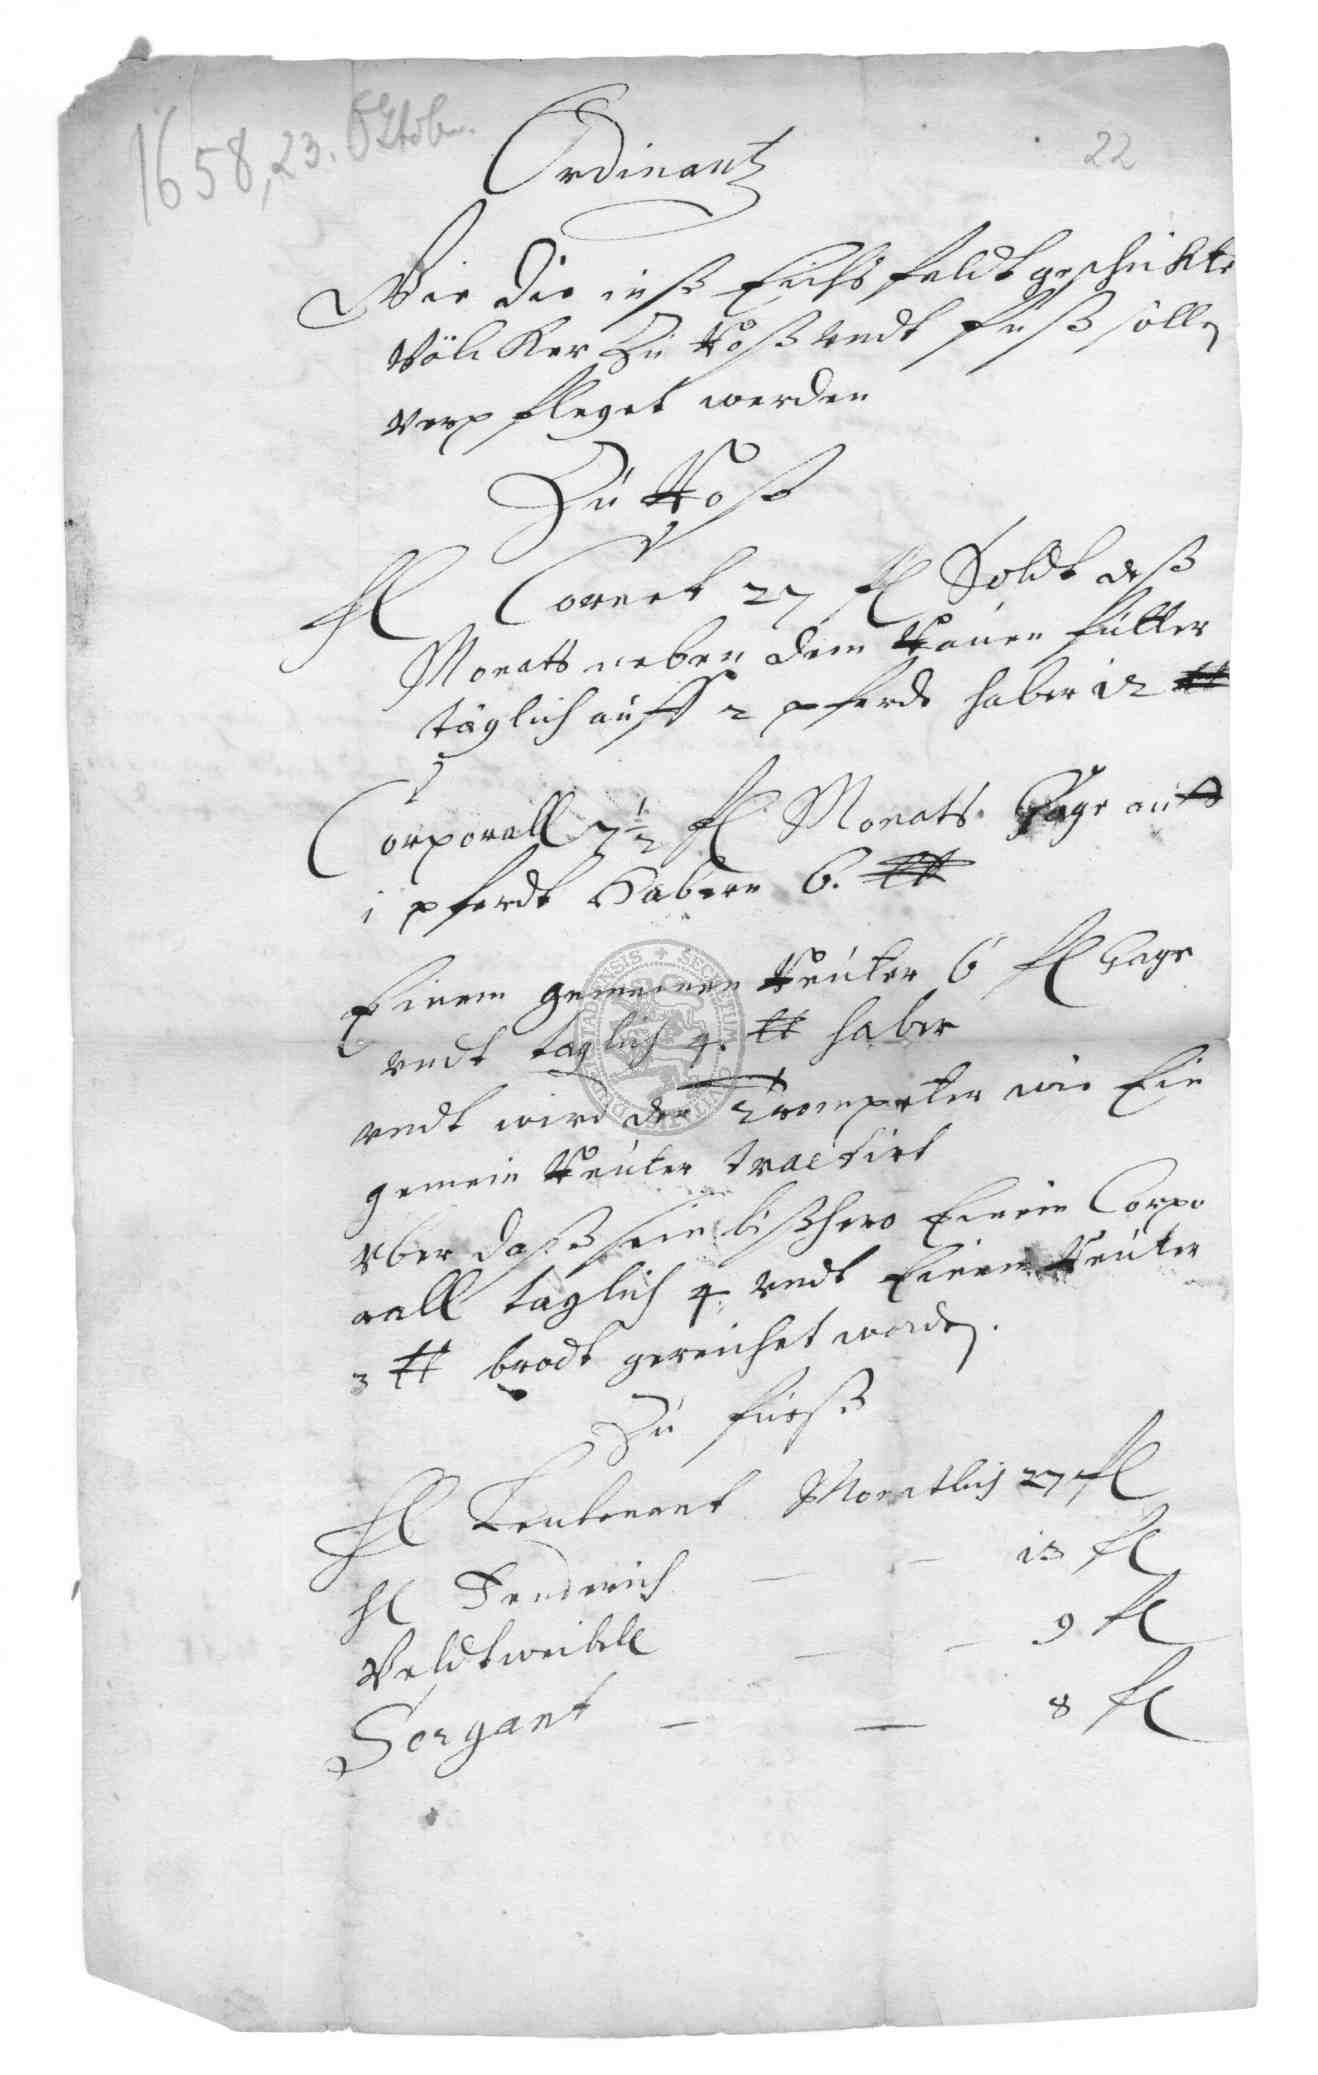 1658, 23. Oktob.
22
Ordinantz
Wie die inß Eichsfeldt geschickte
Völcker zu Roß undt fuß sollen
verpfleget werden
Zu Roß
H Cornet 27 fl Soldt deß
Monats neben dem Rauen futter
täglich auff 2 pferde haber 12 ℔
Corporall 7½ fl Monats Gage auff
1 pferdt Habern 6. ℔
Einem gemeinen Reuter 6 fl Gage
undt täglich 4. ℔ haber
undt wird der Trompeter wie Ein
gemein Reuter tractirt
Uber daß sein bißhero Einem Corpo
rall täglich 4 undt Einem Reuter
3 ℔ brodt gereichet worden.
Zu fueß
H Leutenant Monatlich 27 fl
H Fenderich — — 13 fl
Veldtweibell — — 9 fl
Sergant — — 8 fl
SECRETUM CIVITATIS DUDERSTADENSIS